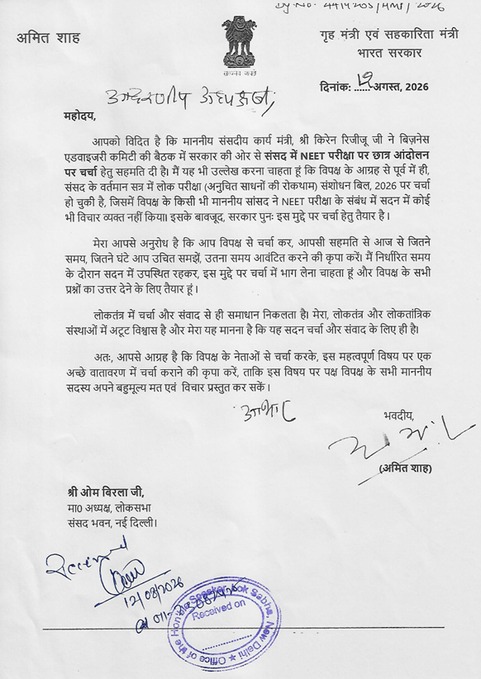 Dy. No. 4414205/HMP/2026
अमित शाह
सत्यमेव जयते
गृह मंत्री एवं सहकारिता मंत्री
भारत सरकार
दिनांक: 12 अगस्त, 2026
आदरणीय अध्यक्षजी,
महोदय,
आपको विदित है कि माननीय संसदीय कार्य मंत्री, श्री किरेन रिजीजू जी ने बिज़नेस
एडवाइजरी कमिटी की बैठक में सरकार की ओर से संसद में NEET परीक्षा पर छात्र आंदोलन
पर चर्चा हेतु सहमति दी है। मैं यह भी उल्लेख करना चाहता हूं कि विपक्ष के आग्रह से पूर्व में ही,
संसद के वर्तमान सत्र में लोक परीक्षा (अनुचित साधनों की रोकथाम) संशोधन बिल, 2026 पर चर्चा
हो चुकी है, जिसमें विपक्ष के किसी भी माननीय सांसद ने NEET परीक्षा के संबंध में सदन में कोई
भी विचार व्यक्त नहीं किया। इसके बावजूद, सरकार पुनः इस मुद्दे पर चर्चा हेतु तैयार है।
मेरा आपसे अनुरोध है कि आप विपक्ष से चर्चा कर, आपसी सहमति से आज से जितने
समय, जितने घंटे आप उचित समझें, उतना समय आवंटित करने की कृपा करें। मैं निर्धारित समय
के दौरान सदन में उपस्थित रहकर, इस मुद्दे पर चर्चा में भाग लेना चाहता हूं और विपक्ष के सभी
प्रश्नों का उत्तर देने के लिए तैयार हूं ।
लोकतंत्र में चर्चा और संवाद से ही समाधान निकलता है। मेरा, लोकतंत्र और लोकतांत्रिक
संस्थाओं में अटूट विश्वास है और मेरा यह मानना है कि यह सदन चर्चा और संवाद के लिए ही है।
अतः, आपसे आग्रह है कि विपक्ष के नेताओं से चर्चा करके, इस महत्वपूर्ण विषय पर एक
अच्छे वातावरण में चर्चा कराने की कृपा करें, ताकि इस विषय पर पक्ष विपक्ष के सभी माननीय
सदस्य अपने बहुमूल्य मत एवं विचार प्रस्तुत कर सकें ।
आभार
भवदीय,
(अमित शाह)
श्री ओम बिरला जी,
मा0 अध्यक्ष, लोकसभा
संसद भवन, नई दिल्ली।
Received
12/08/2026
Office of the Hon'ble Speaker Lok Sabha, New Delhi
Received on